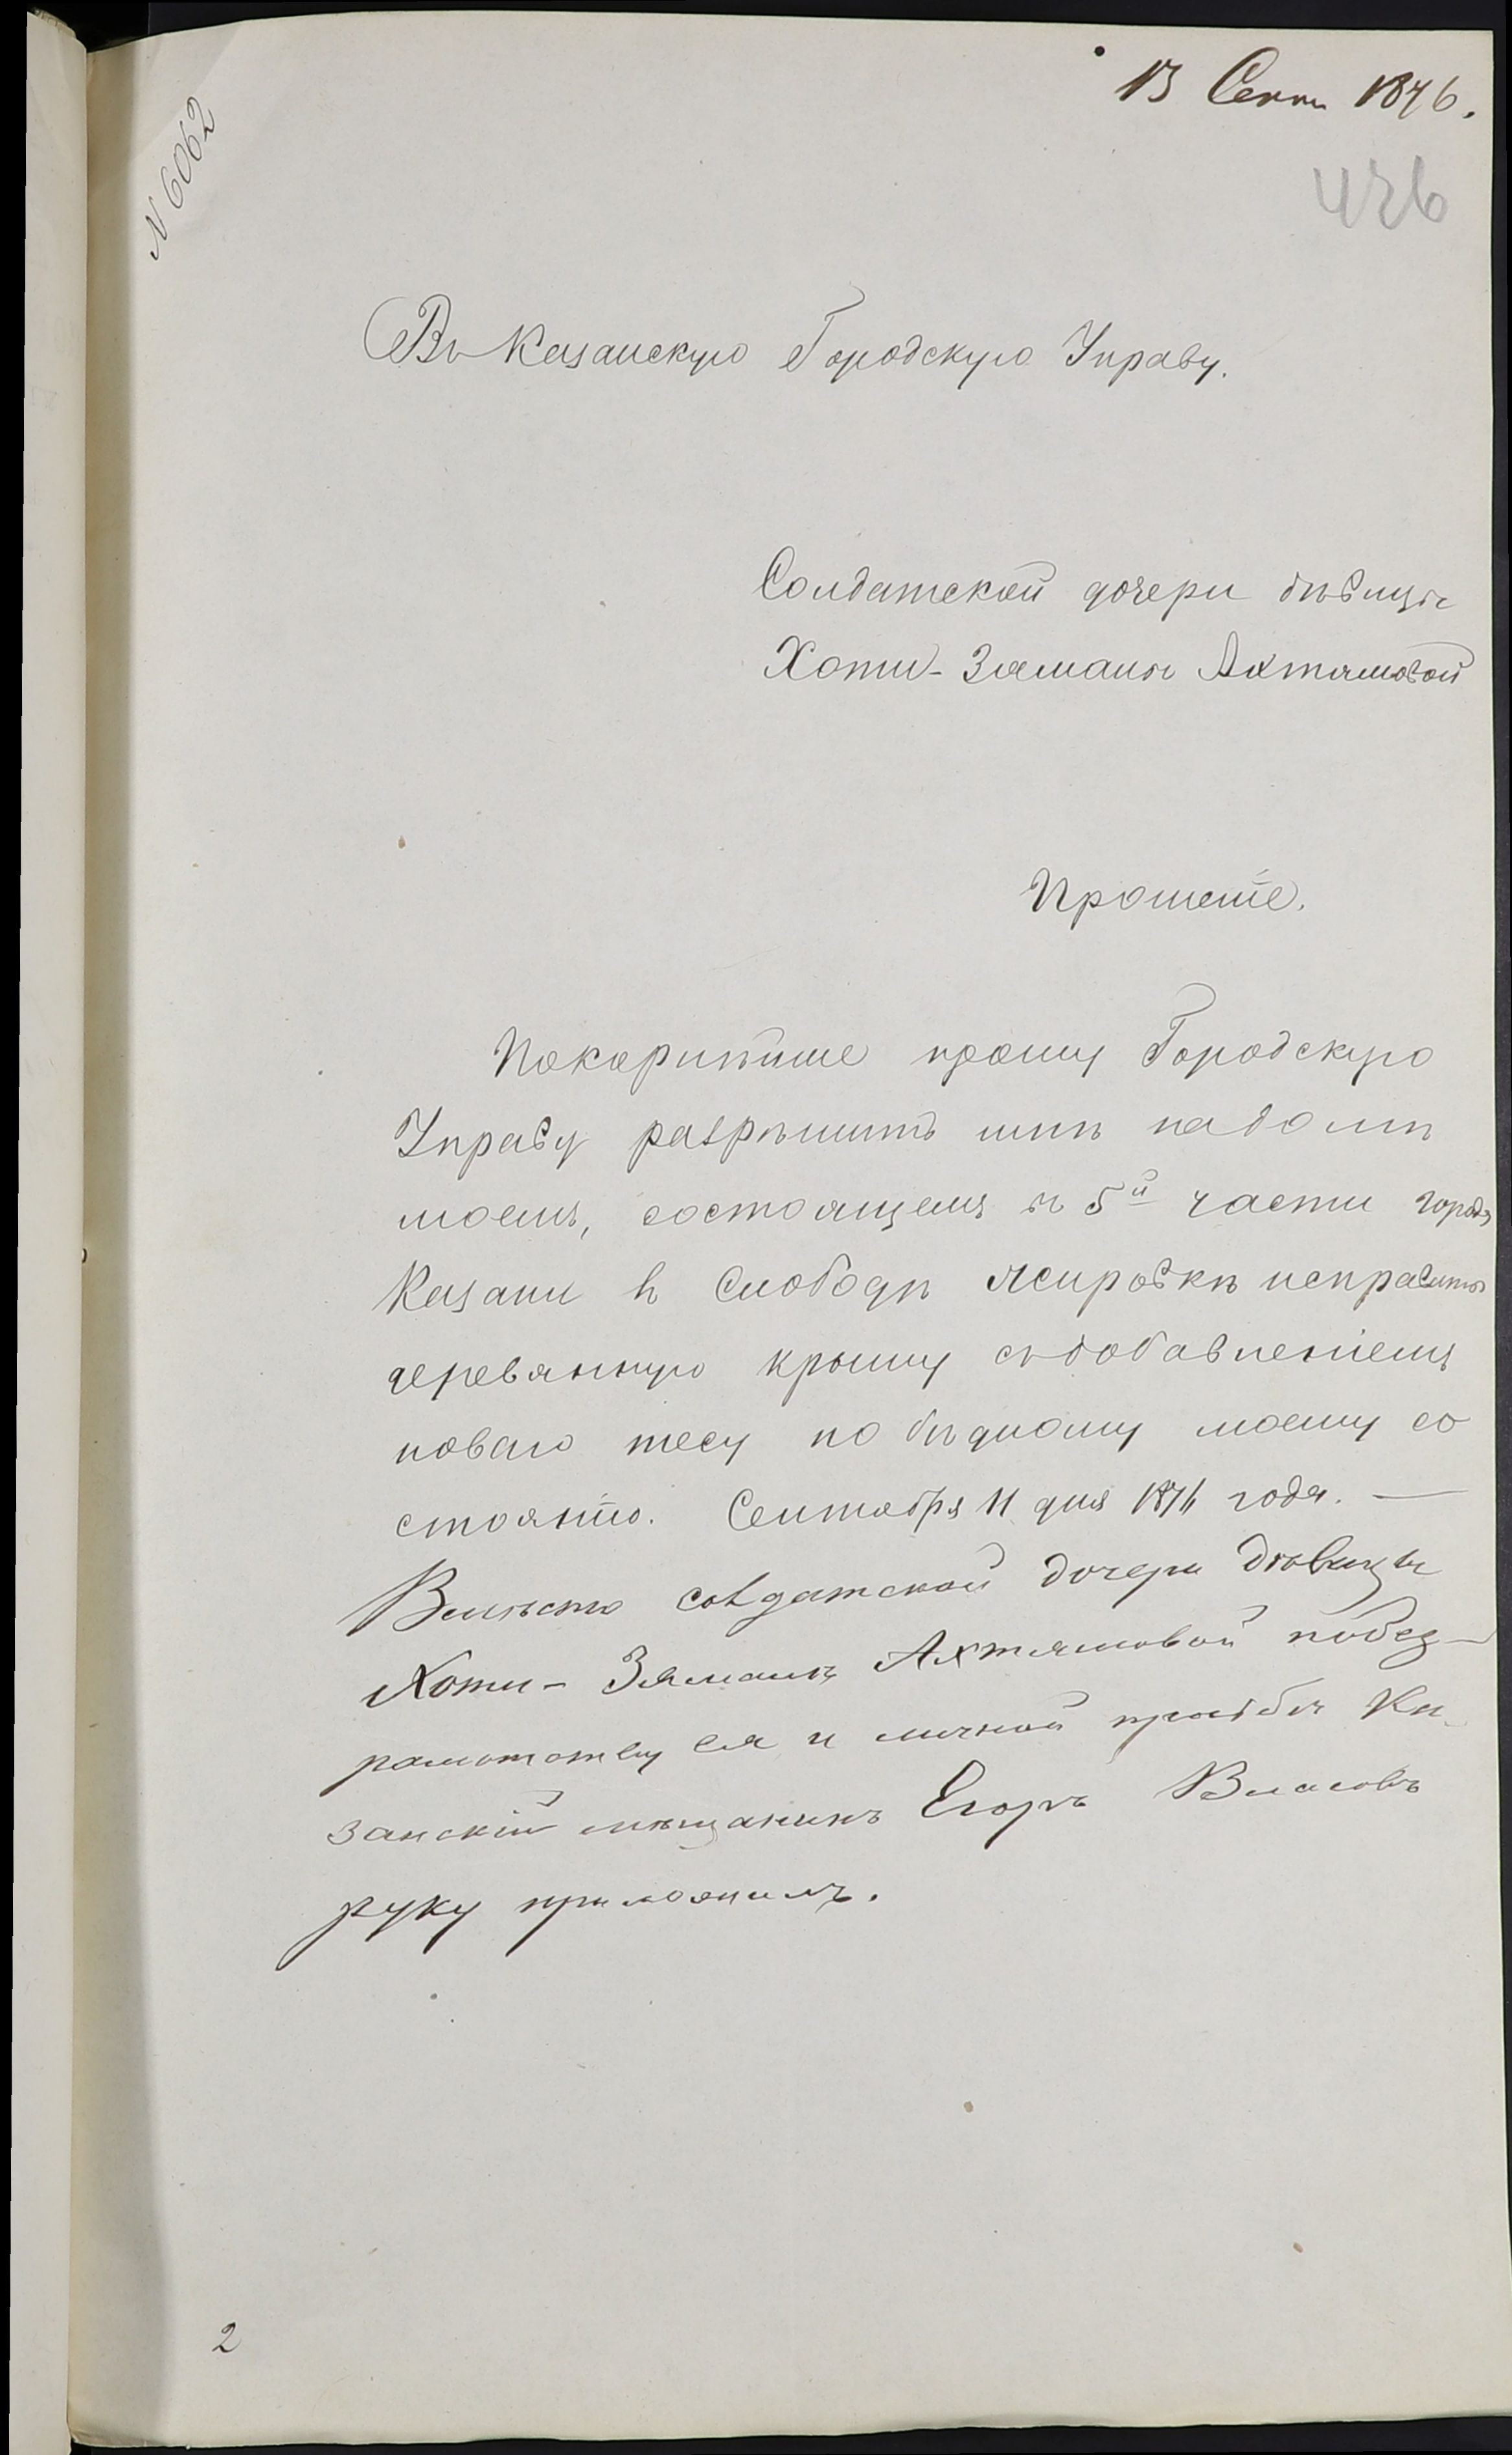 13 Сент 1876.
N 6062
426
Въ Казанскую Городскую Управу.
Солдатской дочери дѣвицы
Хоти-Заманы Ахтямовой
Прошеніе.
Покорнѣйше прошу Городскую
Управу разрѣшить мнѣ на домѣ
моемъ, состоящемъ въ 5й части города
Казани въ Слободѣ исправить
деревянную крышу съ добавленіемъ
новаго тесу по бѣдному моему со
стоянію. Сентября 11 дня 1876 года. —
Вмѣсто солдатской дочери дѣвицы
Хоти-Заманы Ахтямовой по безг-
рамотству ея и личной просьбѣ Ка-
занскій мѣщанинъ Егоръ Власовъ
руку приложилъ.
2